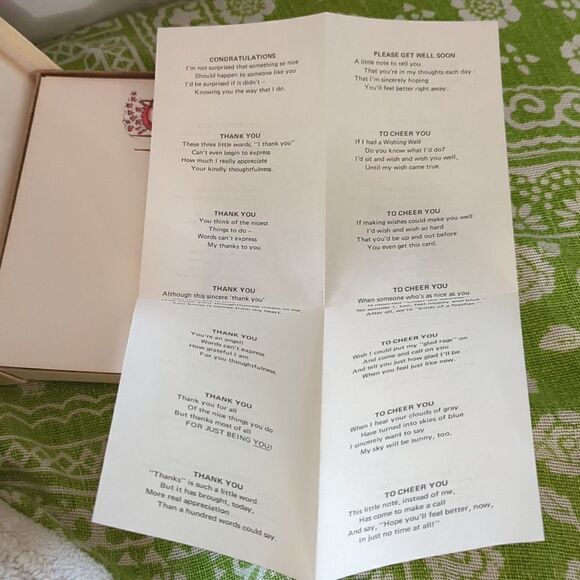 CONGRATULATIONS
I'm not surprised that something so nice
Should happen to someone like you
I'd be surprised if it didn't –
Knowing you the way that I do.
THANK YOU
These three little words, "I thank you"
Can't even begin to express
How much I really appreciate
Your kindly thoughtfulness.
THANK YOU
You think of the nicest
Things to do –
Words can't express
My thanks to you.
THANK YOU
Although this sincere 'thank you'
from my heart.
THANK YOU
You're an angel!
Words can't express
How grateful I am
For you thoughtfulness.
THANK YOU
Thank you for all
Of the nice things you do
But thanks most of all
FOR JUST BEING YOU!
THANK YOU
"Thanks" is such a little word
But it has brought, today,
More real appreciation
Than a hundred words could say.
PLEASE GET WELL SOON
A little note to tell you
That you're in my thoughts each day –
That I'm sincerely hoping
You'll feel better right away.
TO CHEER YOU
If I had a Wishing Well
Do you know what I'd do?
I'd sit and wish and wish you well,
Until my wish came true.
TO CHEER YOU
If making wishes could make you well
I'd wish and wish so hard
That you'd be up and out before
You even get this card.
TO CHEER YOU
When someone who's as nice as you
No wonder I, too, feel
After all, we're "birds of a feather"
TO CHEER YOU
Wish I could put my "glad rags" on
And come and call on you
And tell you just how glad I'll be
When you feel just like new.
TO CHEER YOU
When I hear your clouds of gray
Have turned into skies of blue
I sincerely want to say
My sky will be sunny, too.
TO CHEER YOU
This little note, instead of me,
Has come to make a call
And say, "Hope you'll feel better, now,
In just no time at all!"